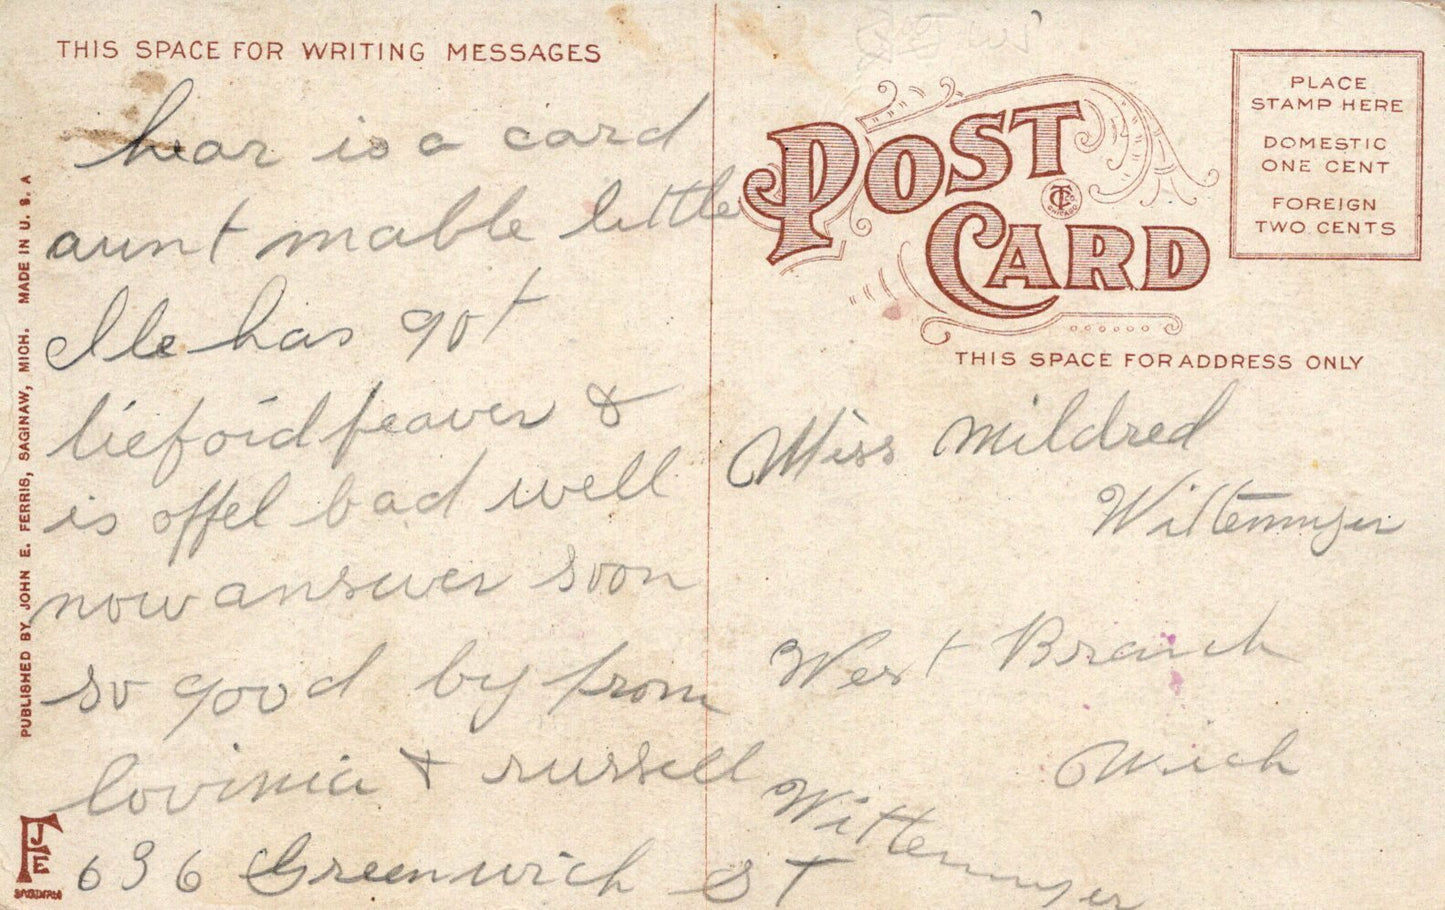 THIS SPACE FOR WRITING MESSAGES
hear is a card
aunt mable little
Ile has got
tiefoid feaver &
is offel bad well
now answer soon
so good by from
lovinia & russell
Wittemyer
636 Greenwich ST
PUBLISHED BY JOHN E. FERRIS, SAGINAW, MICH. MADE IN U. S. A
FJE
SAGINAW
POST CARD
C T Co. CHICAGO
THIS SPACE FOR ADDRESS ONLY
PLACE
STAMP HERE
DOMESTIC
ONE CENT
FOREIGN
TWO CENTS
Miss Mildred
Wittemyer
West Branch
Mich